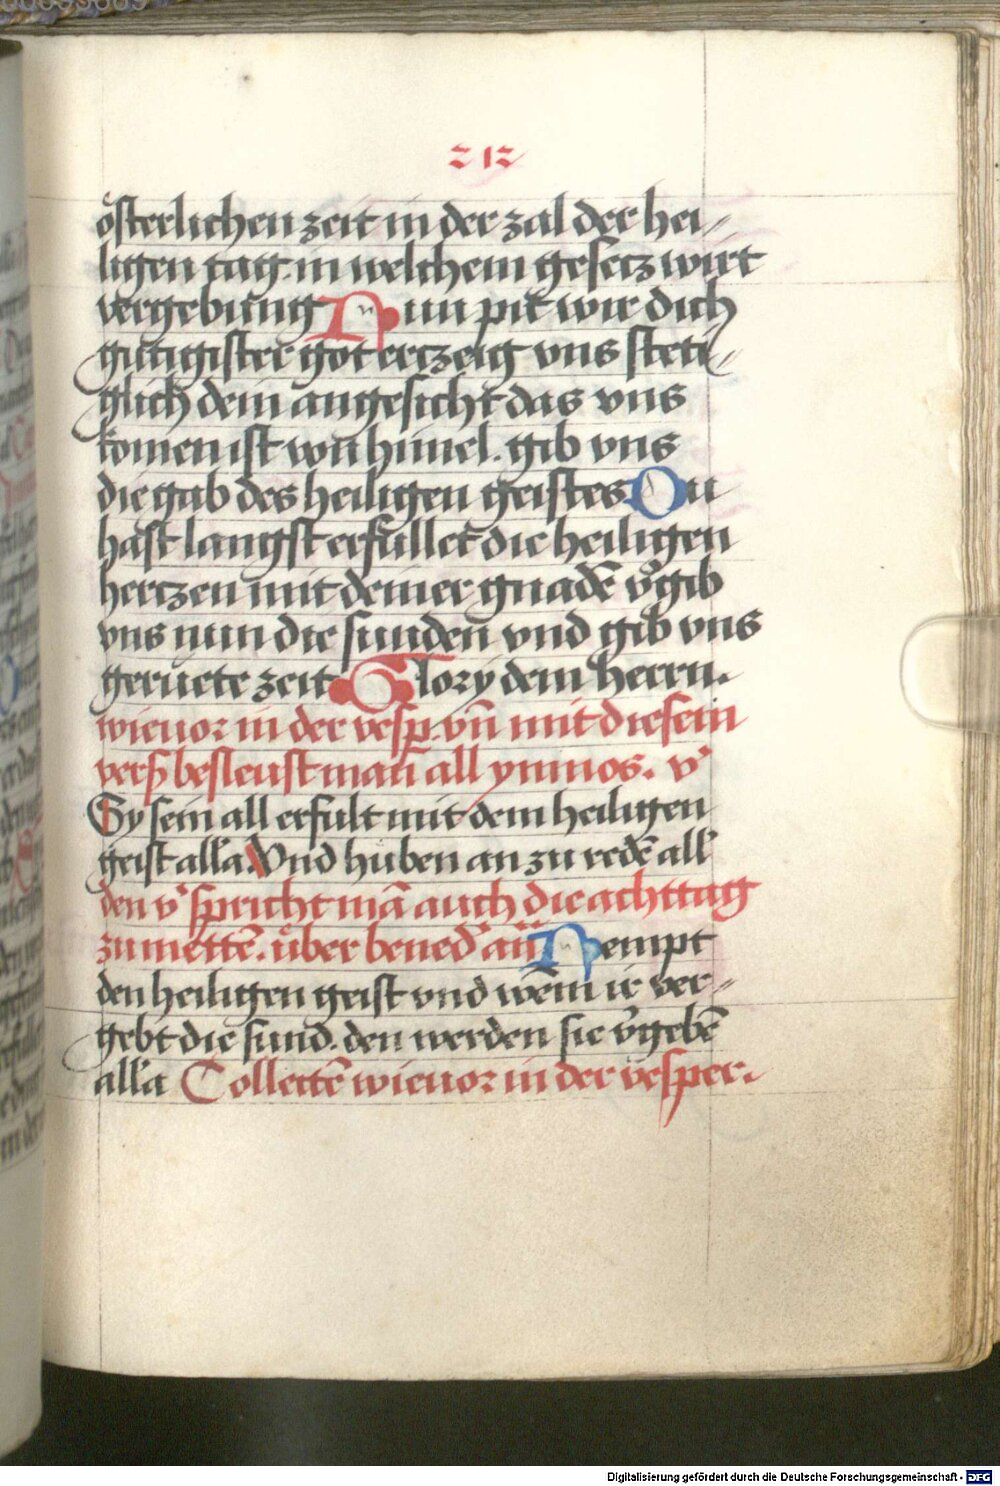 212
österlichen zeit in der zal der hei-
ligen tag. in welchem gesetz wirt
vergebung Nun pit wir dich
gutigister got ertzeig vns steti-
glich dein angesicht das vns
komen ist vōn himel. gib vns
die gab des heiligen geistes Du
hast langst erfullet die heiligen
hertzen mit deiner gnadē v̓gib
vns nun die sunden vnd gib vns
geruete zeit Glory dem herrn.
wieuor in der vesp. vn̄ mit diesem
vers besleust man all ymnos. v̓
Sy sein all erfult mit dem heiligen
geist alla Vnd huben an zu redē all
den v̓ spricht mā auch die achttag
zu mettē. über bened̓ an̄ Nempt
den heiligen geist vnd wēm ir ver-
gebt die sund. den werden sie v̓gebē
alla Collectē wieuor in der vesper.
Digitalisierung gefördert durch die Deutsche Forschungsgemeinschaft - DFG